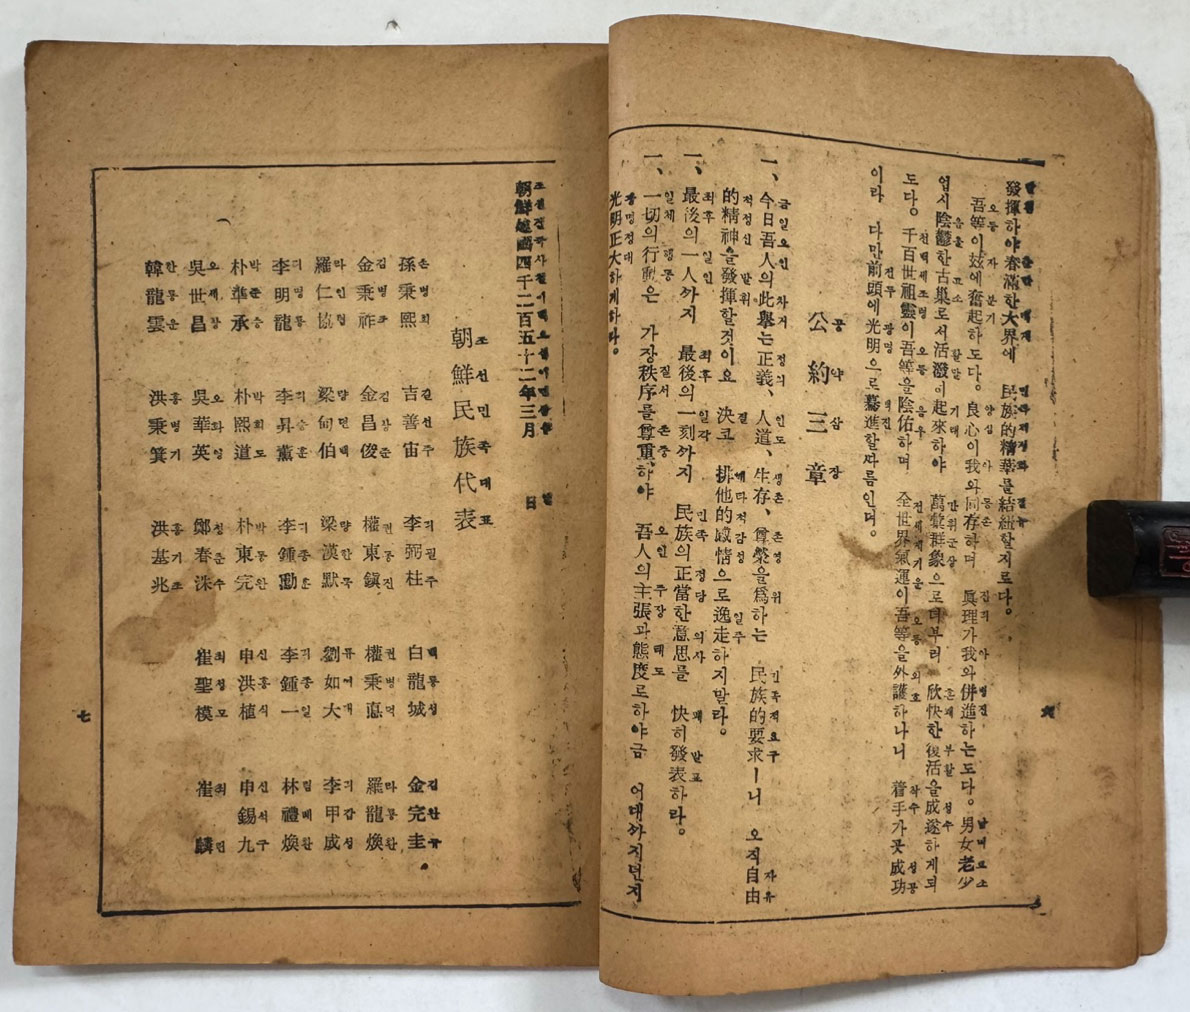 發揮하야春滿한大界에 民族的精華를結紐할지로다。
吾等이玆에奮起하도다。良心이我와同存하며 眞理가我와併進하는도다。男女老少
업시陰鬱한古巢로서活潑이起來하야 萬彙群象으로더부러 欣快한復活을成遂하게되
도다。千百世祖靈이吾等을陰佑하며 全世界氣運이吾等을外護하나니 着手가곳成功
이라 다만前頭에光明으로驀進할따름인뎌。
公約三章
一、今日吾人의此擧는正義、人道、生存、尊榮을爲하는 民族的要求ㅣ니 오직自由
的精神을發揮할것이요 決코 排他的感情으로逸走하지말라。
一、最後의一人까지 最後의一刻까지 民族의正當한意思를 快히發表하라。
一、一切의行動은 가장秩序를尊重하야 吾人의主張과態度로하야금 어대까지던지
光明正大하게하라。
六
朝鮮建國四千二百五十二年三月 日
朝鮮民族代表
孫秉熙 吉善宙 李弼柱 白龍城 金完圭
金秉祚 金昌俊 權東鎭 權秉悳 羅龍煥
羅仁協 梁甸伯 梁漢默 劉如大 李甲成
李明龍 李昇薰 李鍾勳 李鍾一 林禮煥
朴準承 朴熙道 朴東完 申洪植 申錫九
吳世昌 吳華英 鄭春洙 崔聖模 崔麟
韓龍雲 洪秉箕 洪基兆
七